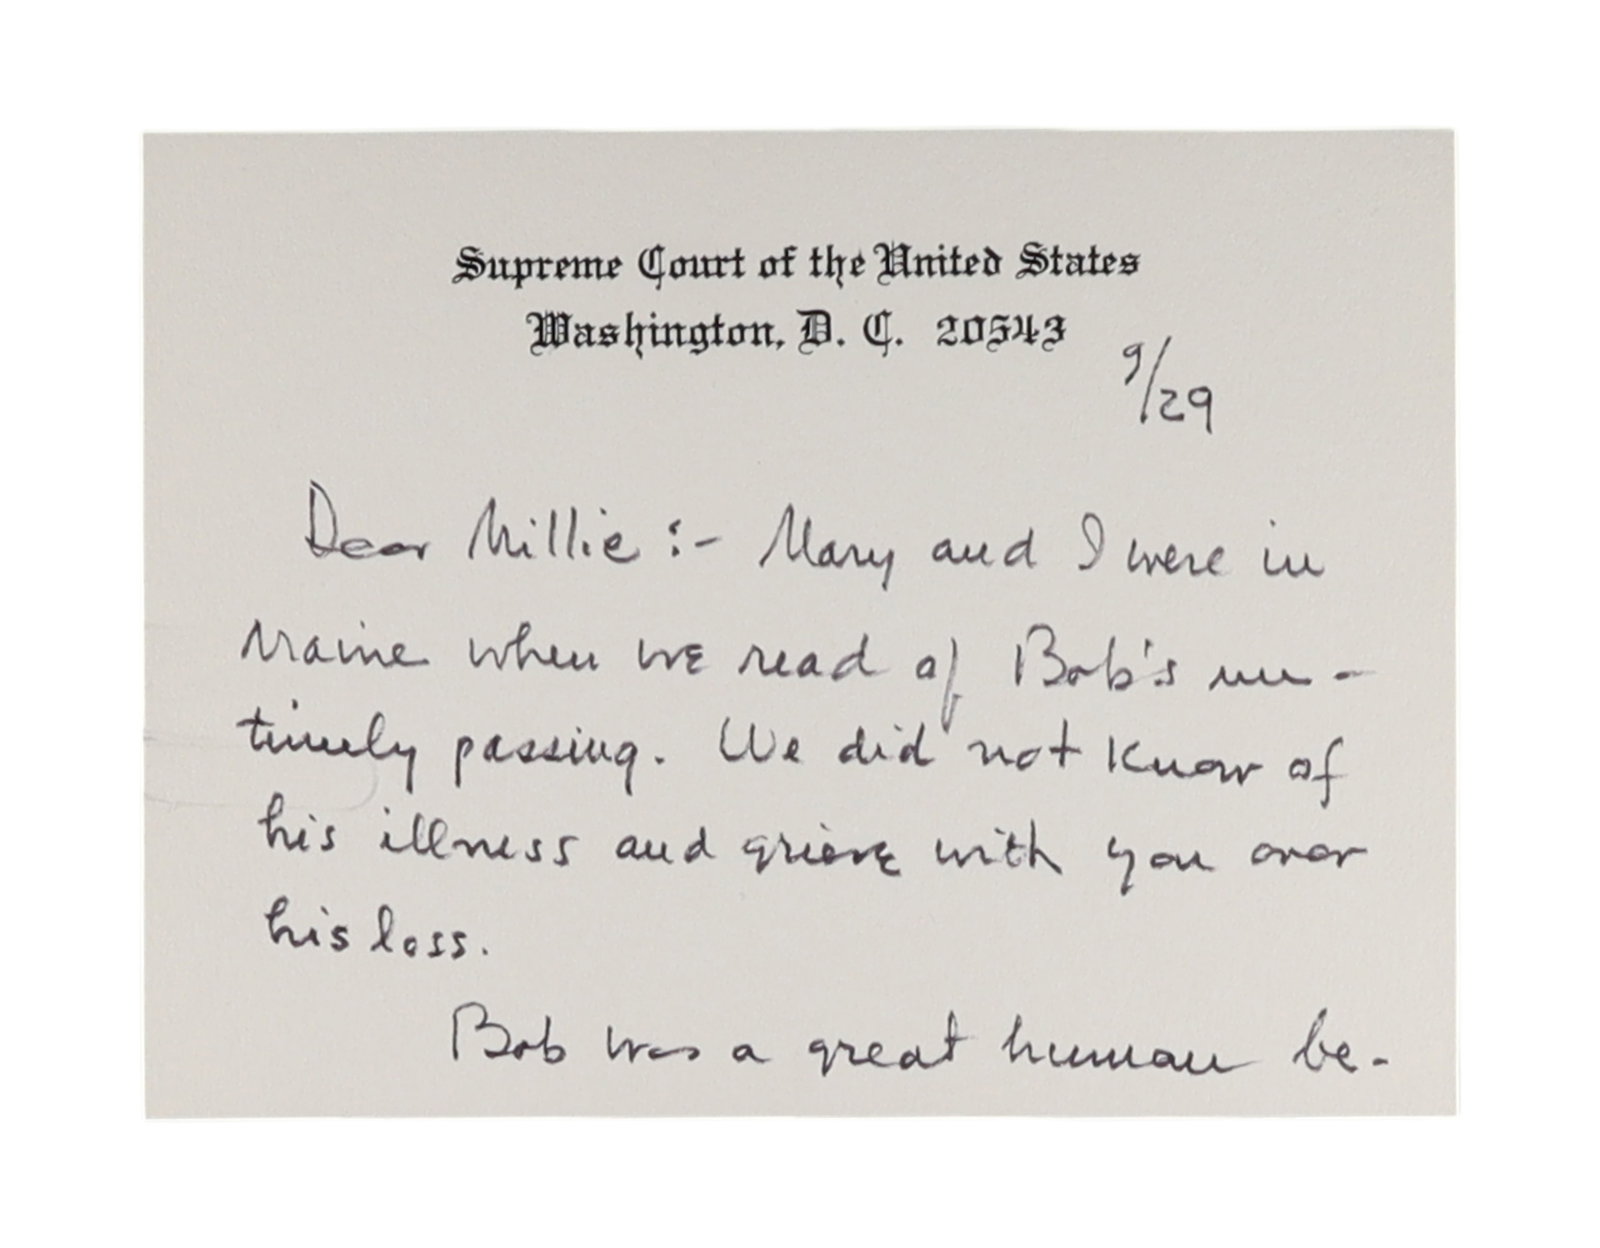 Supreme Court of the United States
Washington, D. C. 20543
9/29
Dear Millie :- Mary and I were in
Maine when we read of Bob's un-
timely passing. We did not know of
his illness and grieve with you over
his loss.
Bob was a great human be-